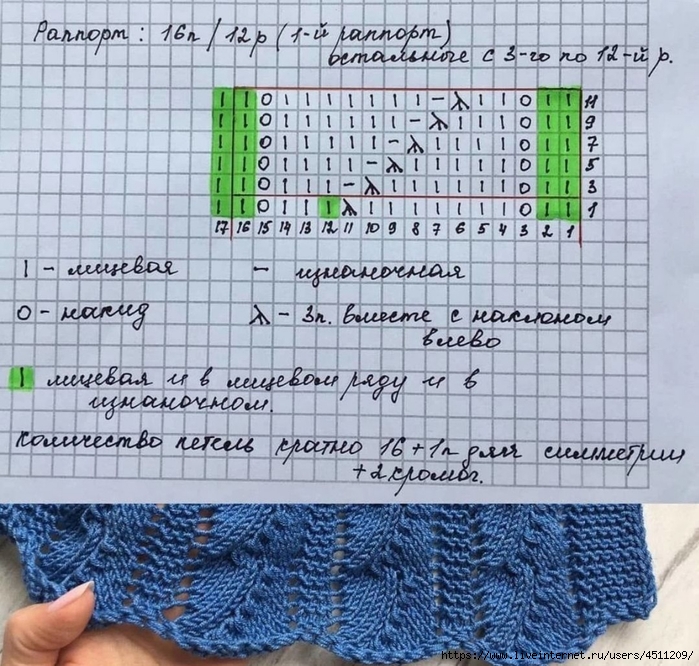 Раппорт: 16п/12р (1-й раппорт)
остальные с 3-го по 12-й р.
I I O I I I I I I I – λ I I O I I 11
I I O I I I I I I – λ I I I O I I 9
I I O I I I I I – λ I I I I O I I 7
I I O I I I I – λ I I I I I O I I 5
I I O I I I – λ I I I I I I O I I 3
I I O I I I λ I I I I I I I O I I 1
17 16 15 14 13 12 11 10 9 8 7 6 5 4 3 2 1
I – лицевая – изнаночная
O – накид λ – 3п. вместе с наклоном
влево
I лицевая и в лицевом ряду и в
изнаночном.
Количество петель кратно 16+1п для симметрии
+2 кромоч.
https://www.liveinternet.ru/users/4511209/